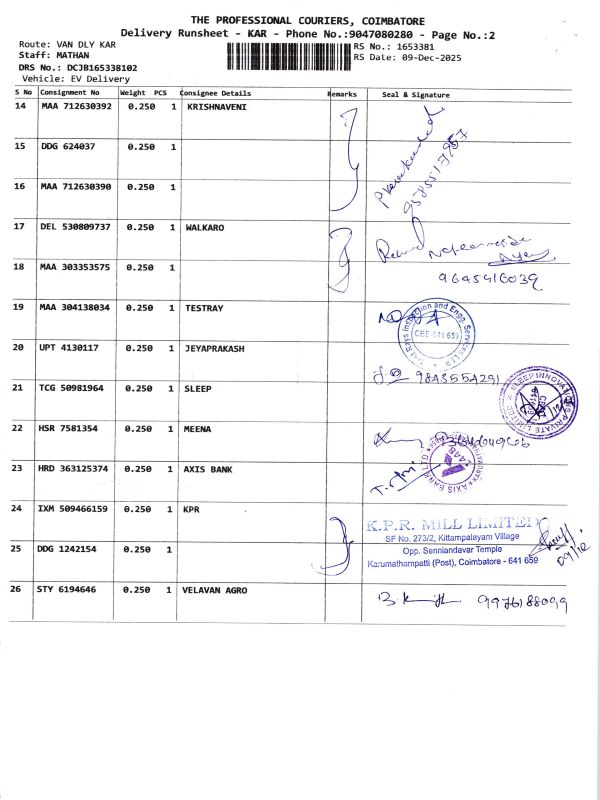 THE PROFESSIONAL COURIERS, COIMBATORE
Delivery Runsheet - KAR - Phone No.:9047080280 - Page No.:2
Route: VAN DLY KAR
RS No.: 1653381
Staff: MATHAN
RS Date: 09-Dec-2025
DRS No.: DCJB165338102
Vehicle: EV Delivery
S No Consignment No Weight PCS Consignee Details Remarks Seal & Signature
14 MAA 712630392 0.250 1 KRISHNAVENI
15 DDG 624037 0.250 1
16 MAA 712630390 0.250 1
17 DEL 530809737 0.250 1 WALKARO
18 MAA 303353575 0.250 1
9645916039
19 MAA 304138034 0.250 1 TESTRAY
CBE-641 659
20 UPT 4130117 0.250 1 JEYAPRAKASH
9843554291
21 TCG 50981964 0.250 1 SLEEP
SLEEP INNOVATIONS PRIVATE LIMITED
22 HSR 7581354 0.250 1 MEENA
23 HRD 363125374 0.250 1 AXIS BANK
AXIS BANK LTD
24 IXM 509466159 0.250 1 KPR
K.P.R. MILL LIMITED
SF No. 273/2, Kittampalayam Village
25 DDG 1242154 0.250 1
Opp. Senniandavar Temple
Karumathampatti (Post), Coimbatore - 641 659
09/12
26 STY 6194646 0.250 1 VELAVAN AGRO
9976188099